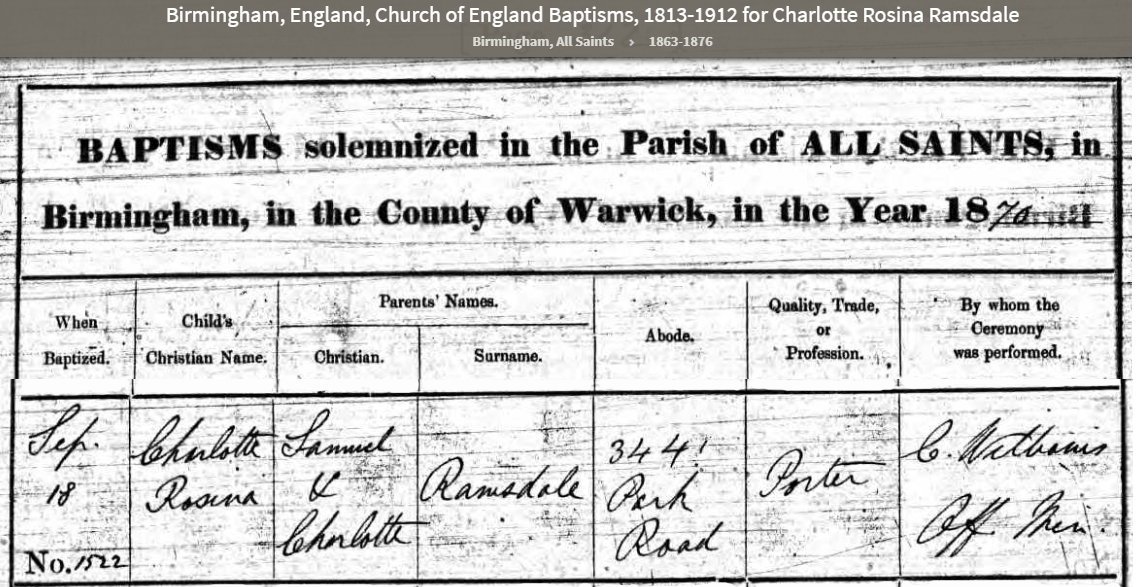 Birmingham, England, Church of England Baptisms, 1813-1912 for Charlotte Rosina Ramsdale
Birmingham, All Saints › 1863-1876
BAPTISMS solemnized in the Parish of ALL SAINTS, in
Birmingham, in the County of Warwick, in the Year 1870
When Baptized.
Child's Christian Name.
Parents' Names.
Christian.
Surname.
Abode.
Quality, Trade, or Profession.
By whom the Ceremony was performed.
Sep. 18
No. 1522
Charlotte Rosina
Samuel & Charlotte
Ramsdale
344 Park Road
Porter
C. Williams
Off. Min.